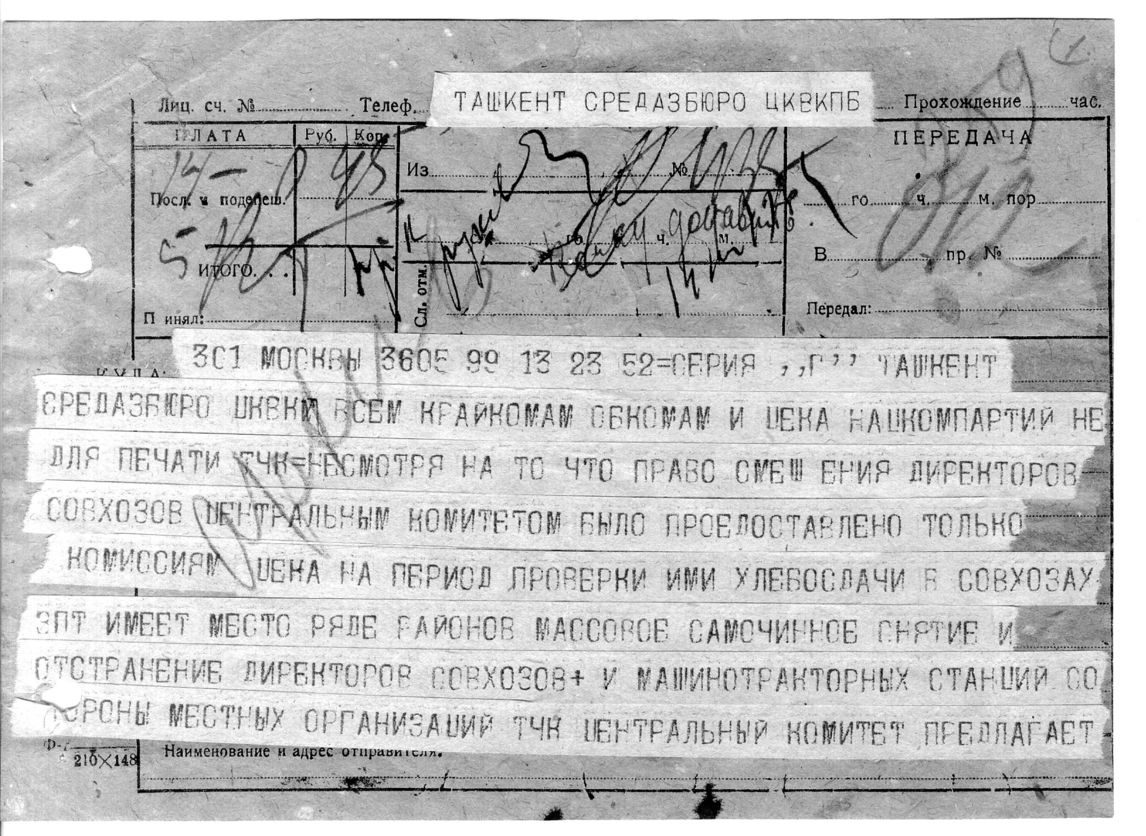 Лиц. сч. № Телеф. ТАШКЕНТ СРЕДАЗБЮРО ЦКВКПБ Прохождение час.
ПЛАТА Руб. Коп. ПЕРЕДАЧА
14 — 8 45 Из №
Посл. и подепеш. го ч. м. пор
5 го ч. м.
ИТОГО. . . В пр. №
Сл. отм.
П инял: Передал:
КУДА:
3С1 МОСКВЫ 3605 99 13 23 52=СЕРИЯ ,,Г’’ ТАШКЕНТ
СРЕДАЗБЮРО ЦКВКП ВСЕМ КРАЙКОМАМ ОБКОМАМ И ЦЕКА НАЦКОМПАРТИЙ НЕ
ДЛЯ ПЕЧАТИ ТЧК=НЕСМОТРЯ НА ТО ЧТО ПРАВО СМЕЩ ЕНИЯ ДИРЕКТОРОВ
СОВХОЗОВ ЦЕНТРАЛЬНЫМ КОМИТЕТОМ БЫЛО ПРОЕДОСТАВЛЕНО ТОЛЬКО
КОМИССИЯМ ЦЕКА НА ПЕРИОД ПРОВЕРКИ ИМИ ХЛЕБОСДАЧИ В СОВХОЗАХ
ЗПТ ИМЕЕТ МЕСТО РЯДЕ РАЙОНОВ МАССОВОЕ САМОЧИННОЕ СНЯТИЕ И
ОТСТРАНЕНИЕ ДИРЕКТОРОВ СОВХОЗОВ+ И МАШИНОТРАКТОРНЫХ СТАНЦИЙ СО
ТОРОНЫ МЕСТНЫХ ОРГАНИЗАЦИЙ ТЧК ЦЕНТРАЛЬНЫЙ КОМИТЕТ ПРЕДЛАГАЕТ
210×148 Наименование и адрес отправителя.